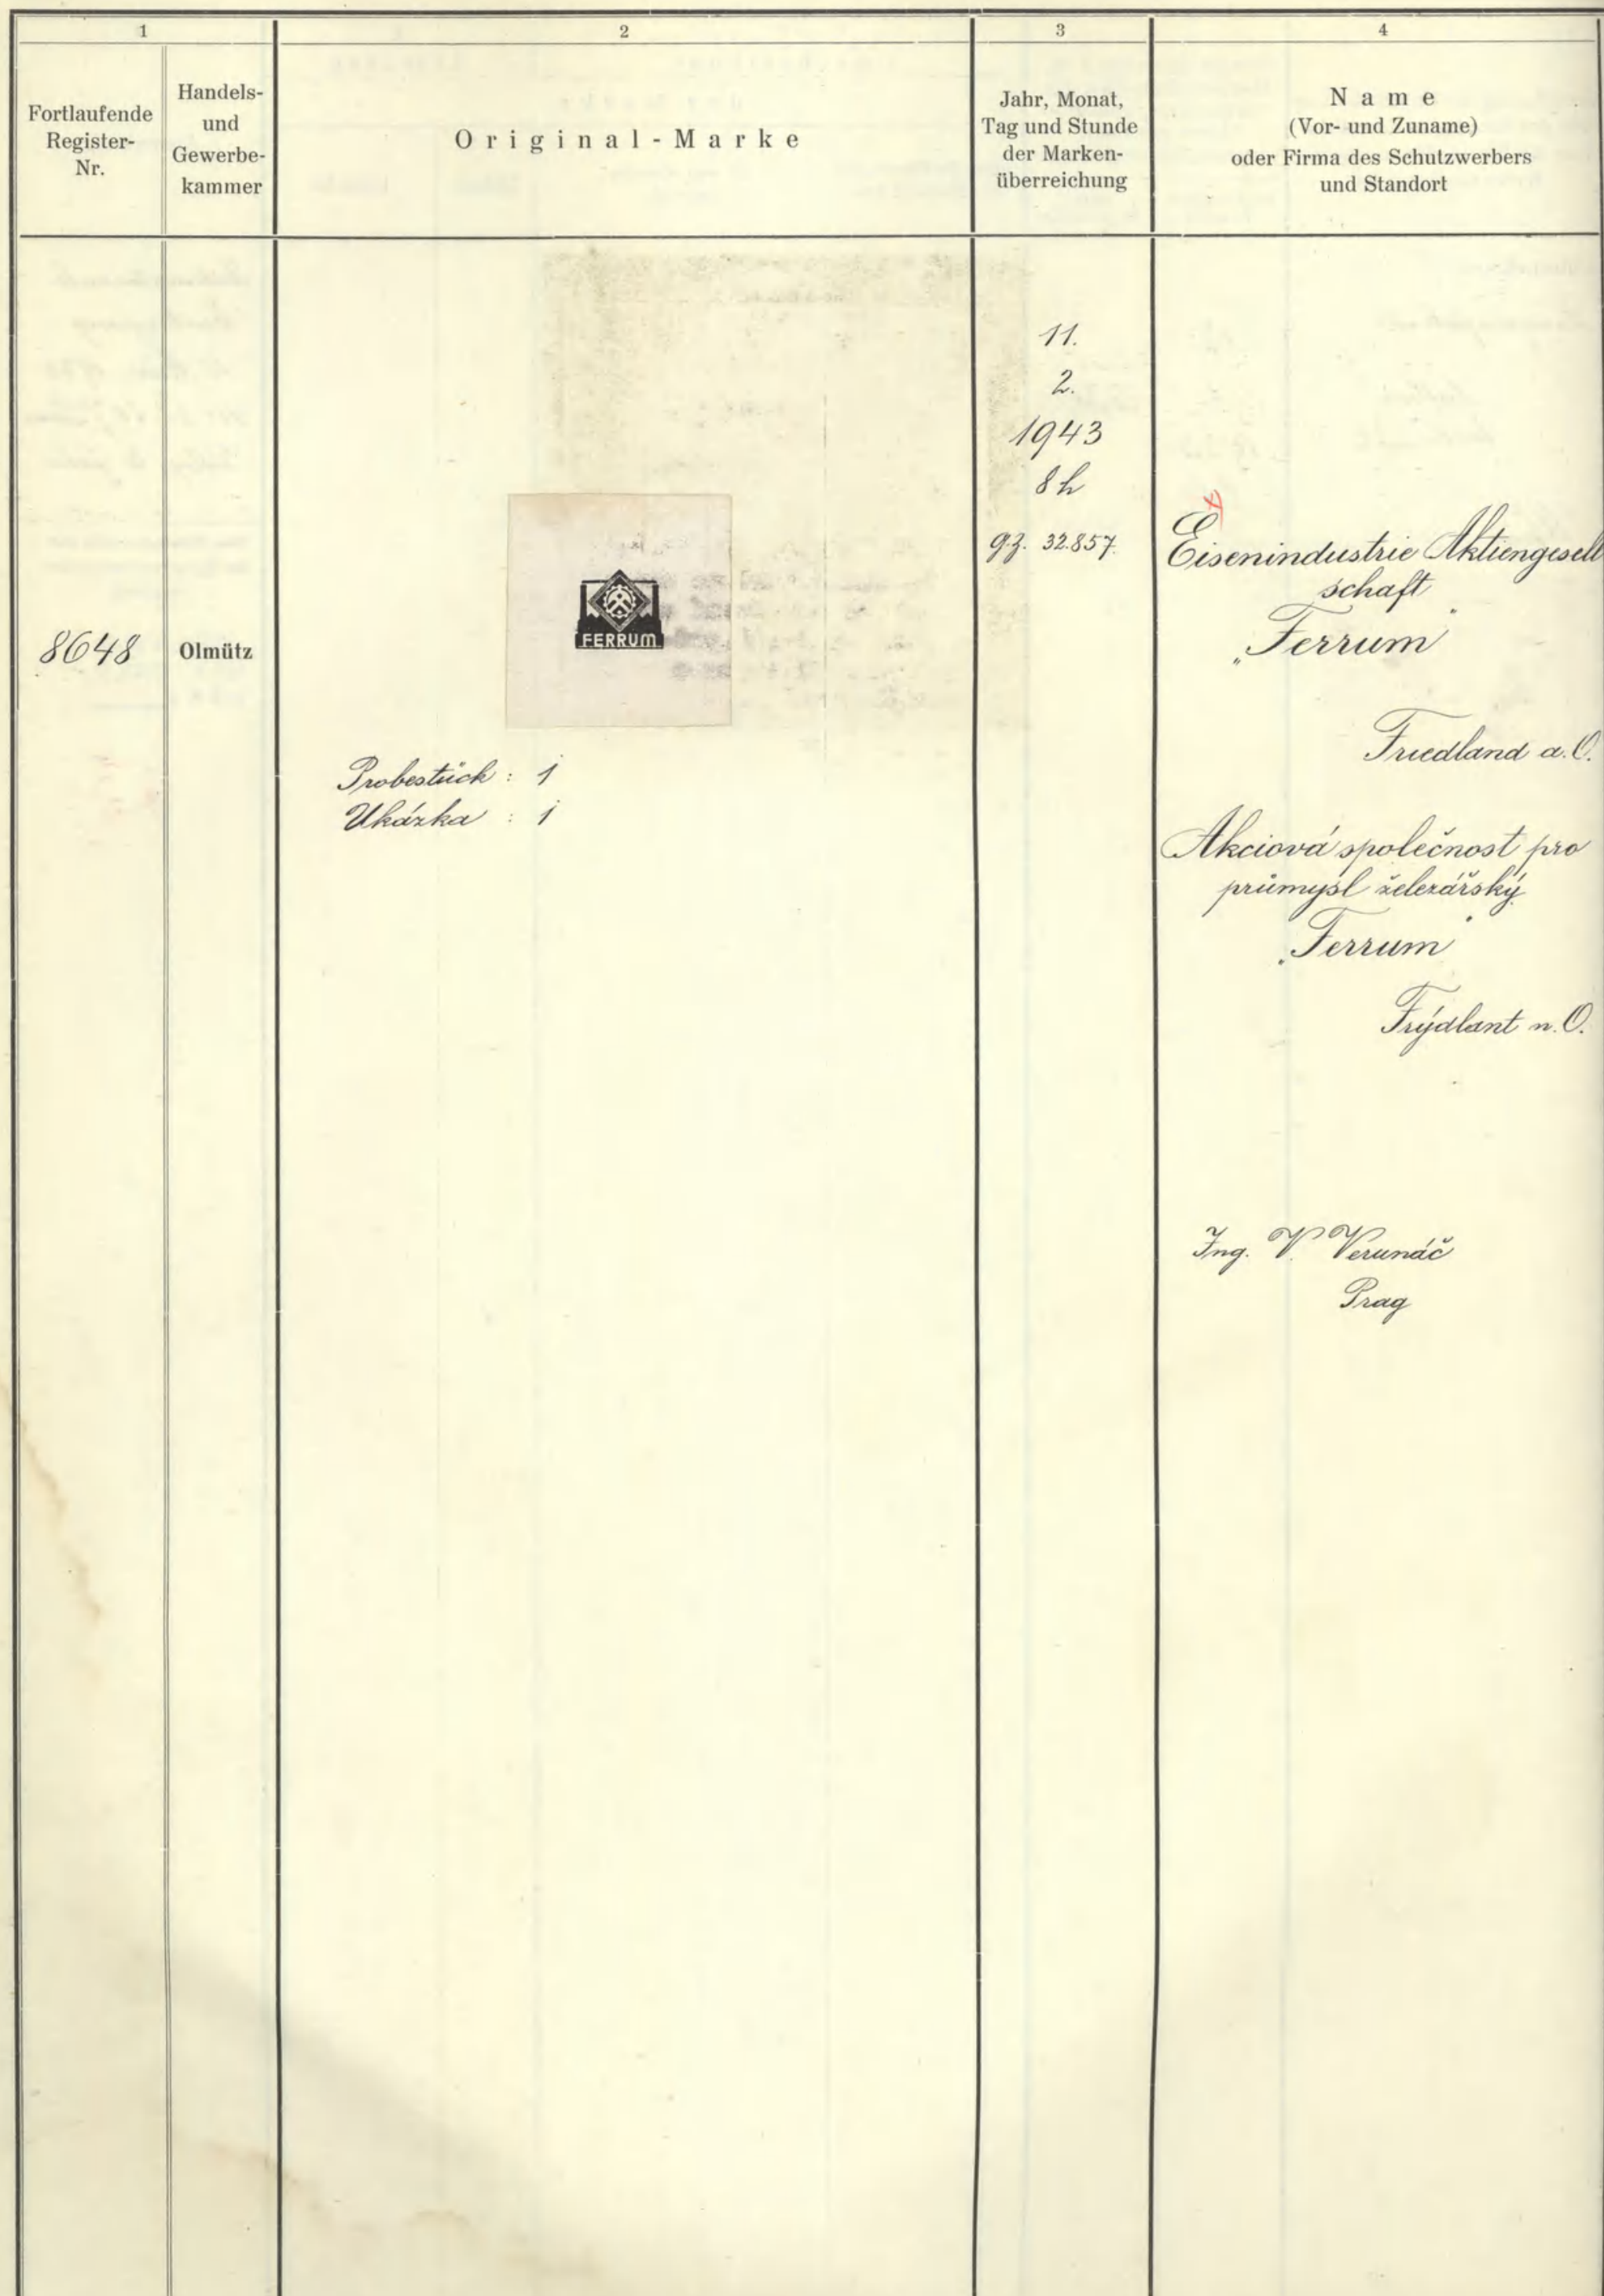 1
2
3
4
Fortlaufende
Register-
Nr.
Handels-
und
Gewerbe-
kammer
Original-Marke
Jahr, Monat,
Tag und Stunde
der Marken-
überreichung
Name
(Vor- und Zuname)
oder Firma des Schutzwerbers
und Standort
8648
Olmütz
FERRUM
Probestück : 1
Ukázka : 1
11.
2.
1943
8 h
g.z. 32.857.
Eisenindustrie Aktiengesell
schaft
„Ferrum"
Friedland a. O.
Akciová společnost pro
průmysl železářský
„Ferrum"
Frýdlant n. O.
Ing. V. Verunáč
Prag